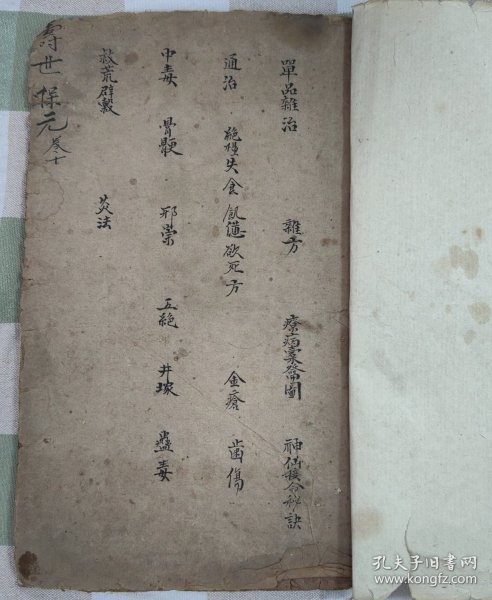 單品雜治 雜方 圖 神仙接命秘訣
通治 絶糧失食飢憊欲死方 金瘡 齒傷
中毒 骨骾 邪祟 五絶 井塚 蠱毒
救荒辟穀 灸法
壽世保元 卷十
孔夫子旧书网
www.kongfz.com